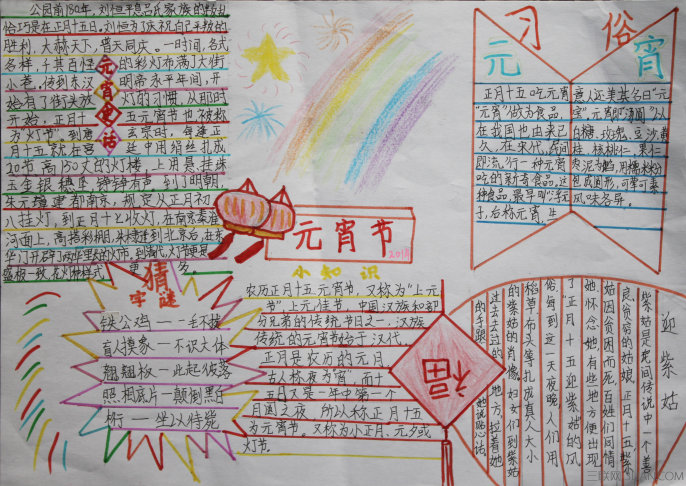 公园前180年,刘恒平息吕氏家族的
俗巧是在正月十五日。刘恒为了庆祝自己平叛的
胜利,大赦天下,普天同庆。一时间,各式
各样,千其百怪的彩灯布满了大街
小巷。传到东汉明帝永平年间,开
始有了街头放灯的习惯,从那时
开始,正月十五元宵节也
为"灯节"。到唐玄宗时,每逢正
月十五就在宫廷中用绢丝扎成
20节高150丈的灯楼,上用悬挂珠
玉金银穗
朱元璋建都南京,规定从正月初
八挂灯,到正月十七收灯,在南京秦淮
河面上,
元宵
话
习俗
元宵
正月十五吃元宵
"元宵"做为食品,
在我国也由来已
久,在宋代,民间
即流行一种元宵
吃的新奇食品,这
种食品,最早叫"浮元
子",后称元宵,生
意人还美其名曰"元
宝"。元宵即"汤圆"以
白糖、玫瑰、豆沙、黄
桂、核桃仁、果仁
枣泥为馅,用糯米粉
包成圆形,可荤可素
风味各异。
元宵节
小知识
农历正月十五元宵节,又称为"上元
节",上元佳节,中国汉族和部
分兄弟的传统节日之一,汉族
传统的元宵节始于汉代,
正月是农历的元月,
古人称夜为"宵",而十
五日又是一年中第一个
月圆之夜,所以称正月十五
为元宵节。又称为小正月、元夕或
灯节。
猜
字谜
铁公鸡——一毛不拔
盲人摸象——不识大体
翘翘板——此起彼落
照相底片——颠倒黑白
桥——坐以待毙
福
迎紫姑
紫姑是民间传说中一个善
良、贫穷的姑娘。正月十五,紫
姑因贫困而死。百姓们同情
她、怀念她,有些地方便出现
了正月十五迎紫姑的风
俗。每到这一天夜晚,人们用
稻草、布头等扎成真人大小
的紫姑的肖像。妇女们到紫姑
过去去过的地方,拉着她
的手跟她说贴心话。